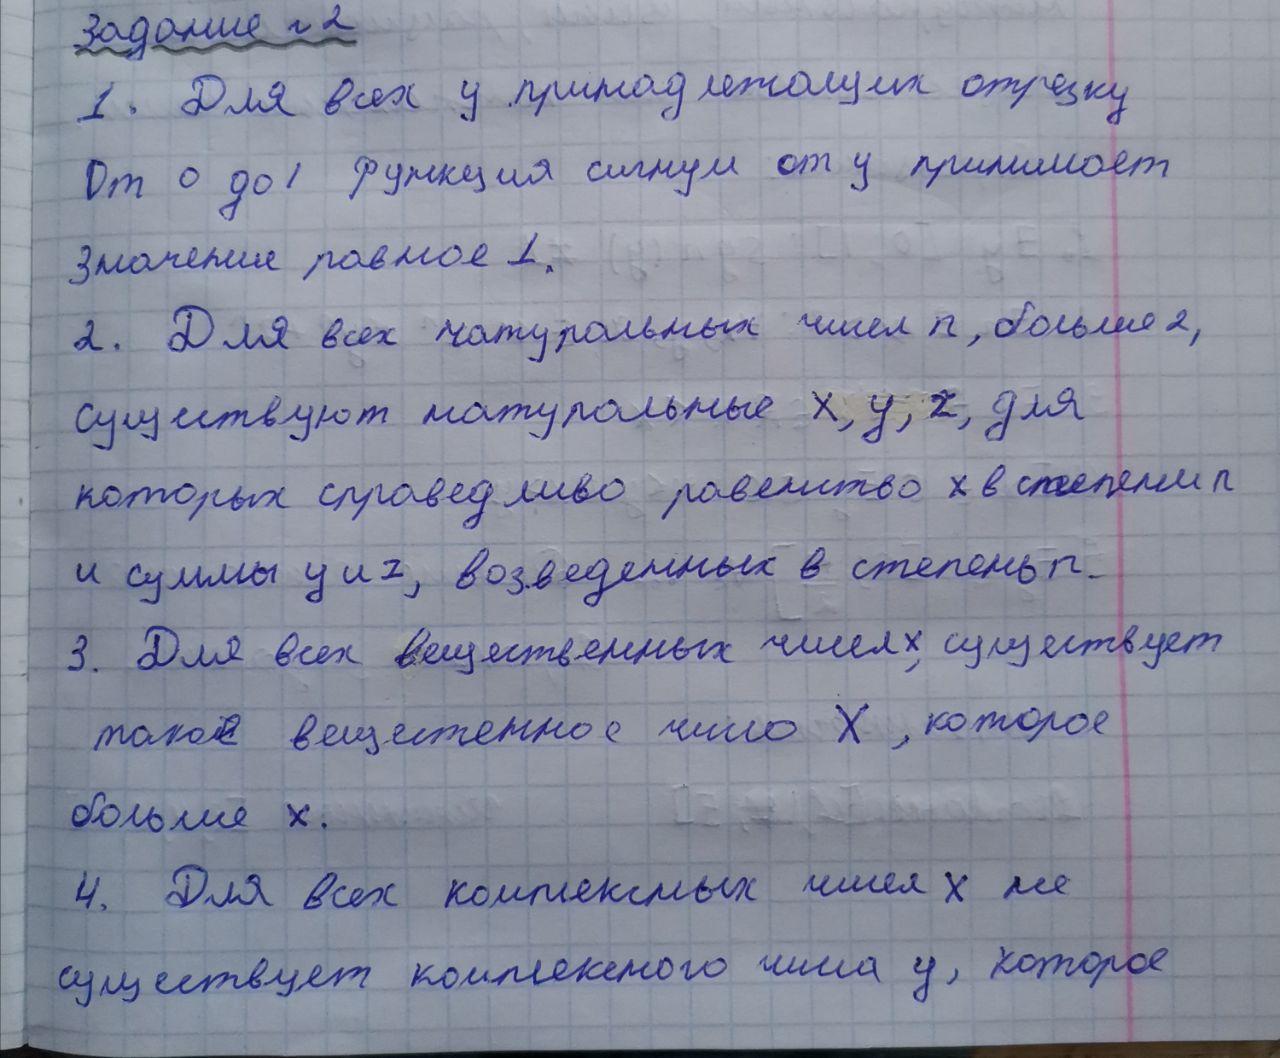 Задание №2
1. Для всех y принадлежащих отрезку
От 0 до 1 функция сигнум от y принимает
значение равное 1.
2. Для всех натуральных чисел n, больше 2,
существуют натуральные x, y, z, для
которых справедливо равенство x в степени n
и суммы y и z, возведенных в степень n.
3. Для всех вещественных чисел x, существует
такое вещественное число X, которое
больше x.
4. Для всех комплексных чисел x не
существует комплексного числа y, которое